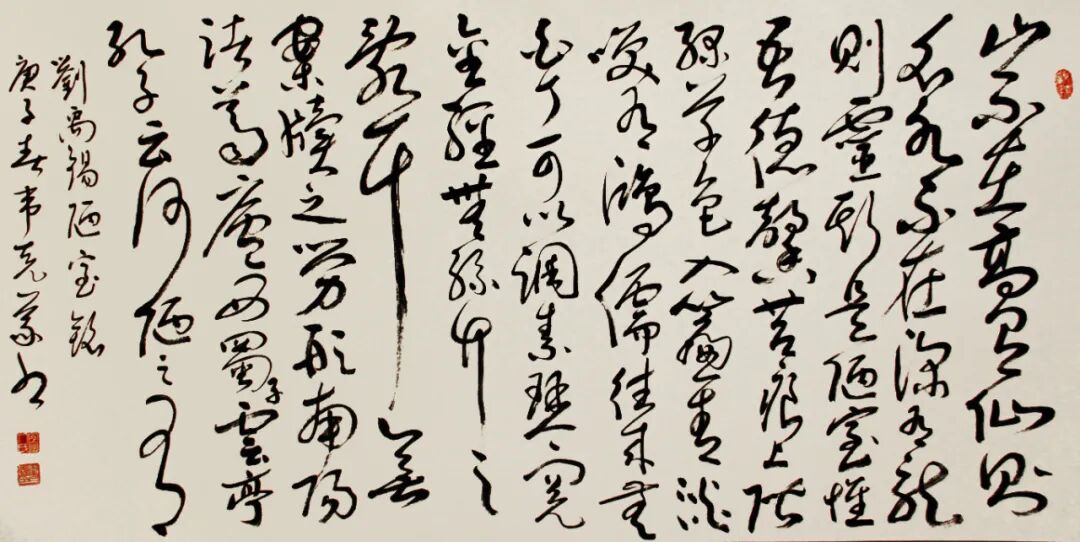 山不在高有仙則
名水不在深有龍
則靈斯是陋室惟
吾德馨苔痕上階
綠草色入簾青談
咲有鴻儒往來無
白丁可以調素琴閱
金經無絲竹之
亂耳無
案牘之勞形南陽
諸葛廬西蜀子雲亭
孔子云何陋之有
劉禹錫陋室銘
庚子春韦克義书